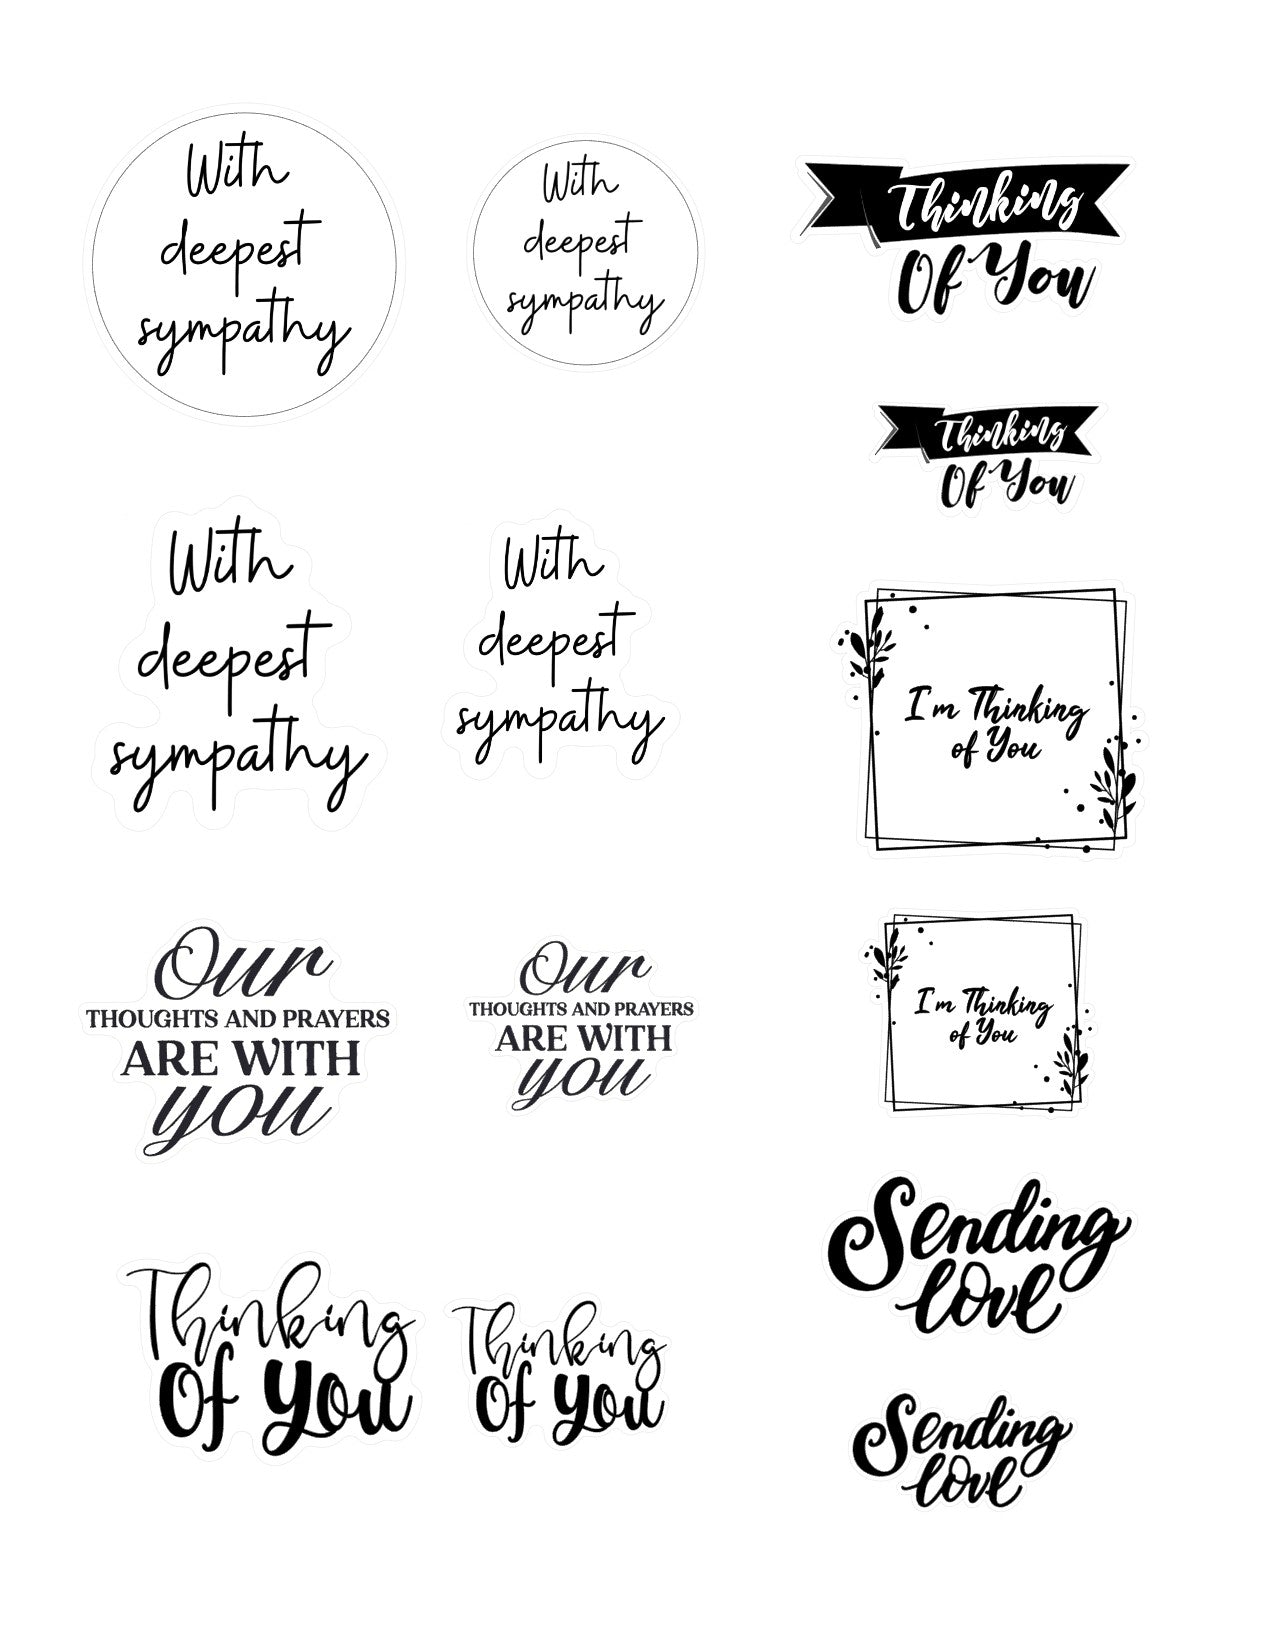 With
deepest
sympathy
With
deepest
sympathy
Thinking
Of You
Thinking
Of You
With
deepest
sympathy
With
deepest
sympathy
I'm Thinking
of You
Our
THOUGHTS AND PRAYERS
ARE WITH
you
Our
THOUGHTS AND PRAYERS
ARE WITH
you
I'm Thinking
of You
Thinking
Of You
Thinking
Of You
Sending
love
Sending
love